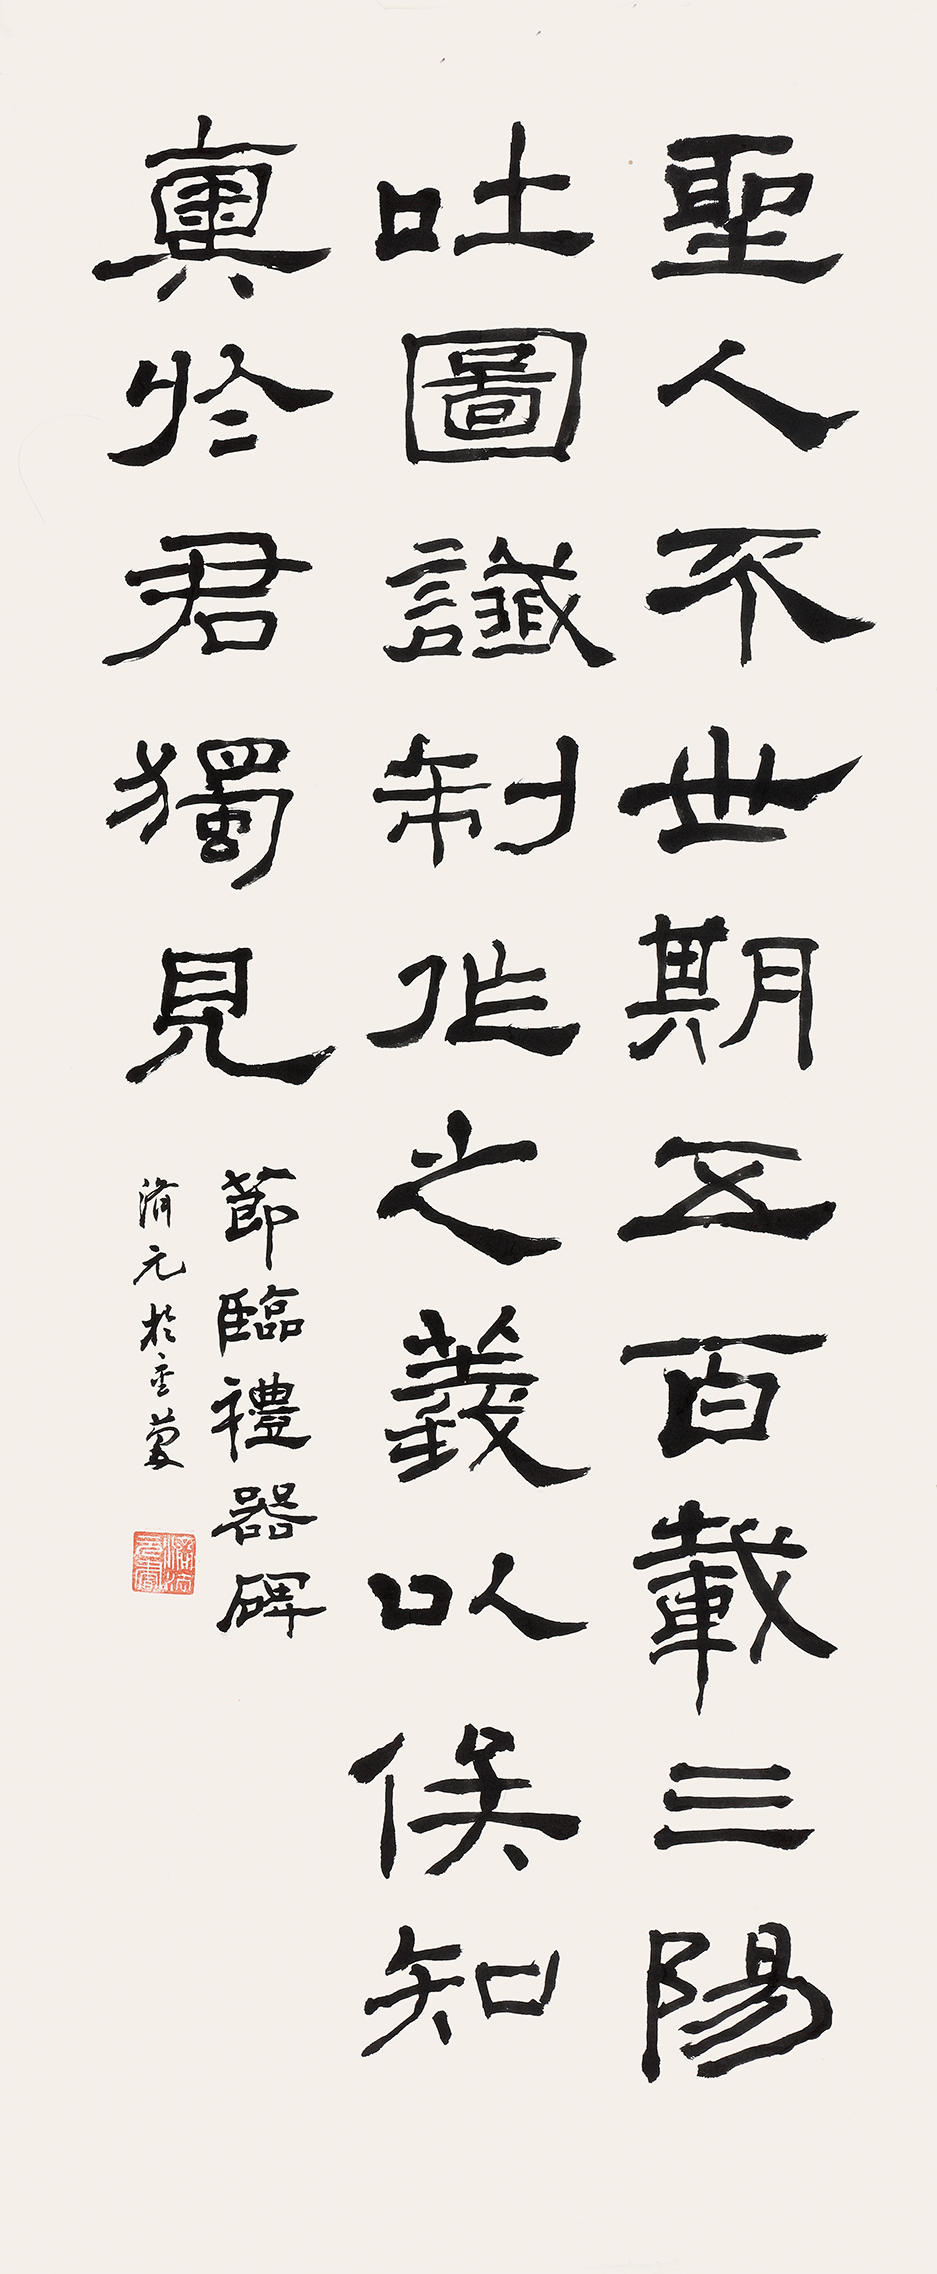 聖人不世期五百載三陽
吐圖讖制作之義以俟知
奧於君獨見
節臨禮器碑
濟元於